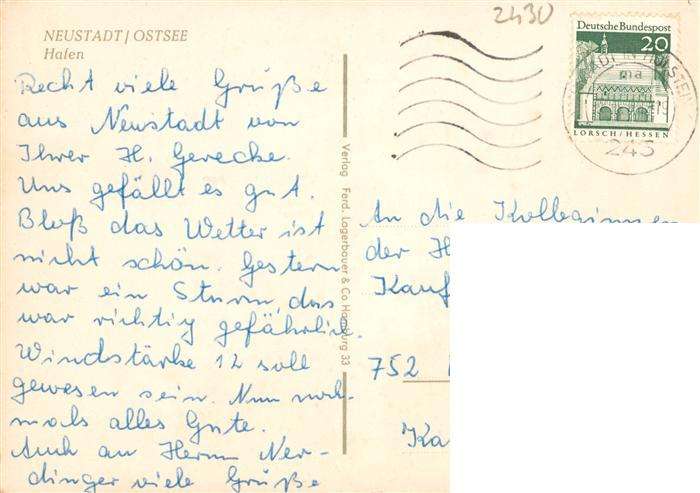 2430
NEUSTADT / OSTSEE
Hafen
Deutsche Bundespost
20
LORSCH / HESSEN
243
Recht viele Grüße
aus Neustadt von
Ihrer H. Gerecke.
Uns gefällt es gut.
Bloß das Wetter ist
nicht schön. Gestern
war ein Sturm, das
war richtig gefährlich.
Windstärke 12 soll
gewesen sein. Nun noch-
mals alles Gute.
Auch an Herrn Ner-
dinger viele Grüße
Verlag Ferd. Lagerbauer & Co. Hamburg 33
An die Kolleginnen
der H
Kauf
752
Ka